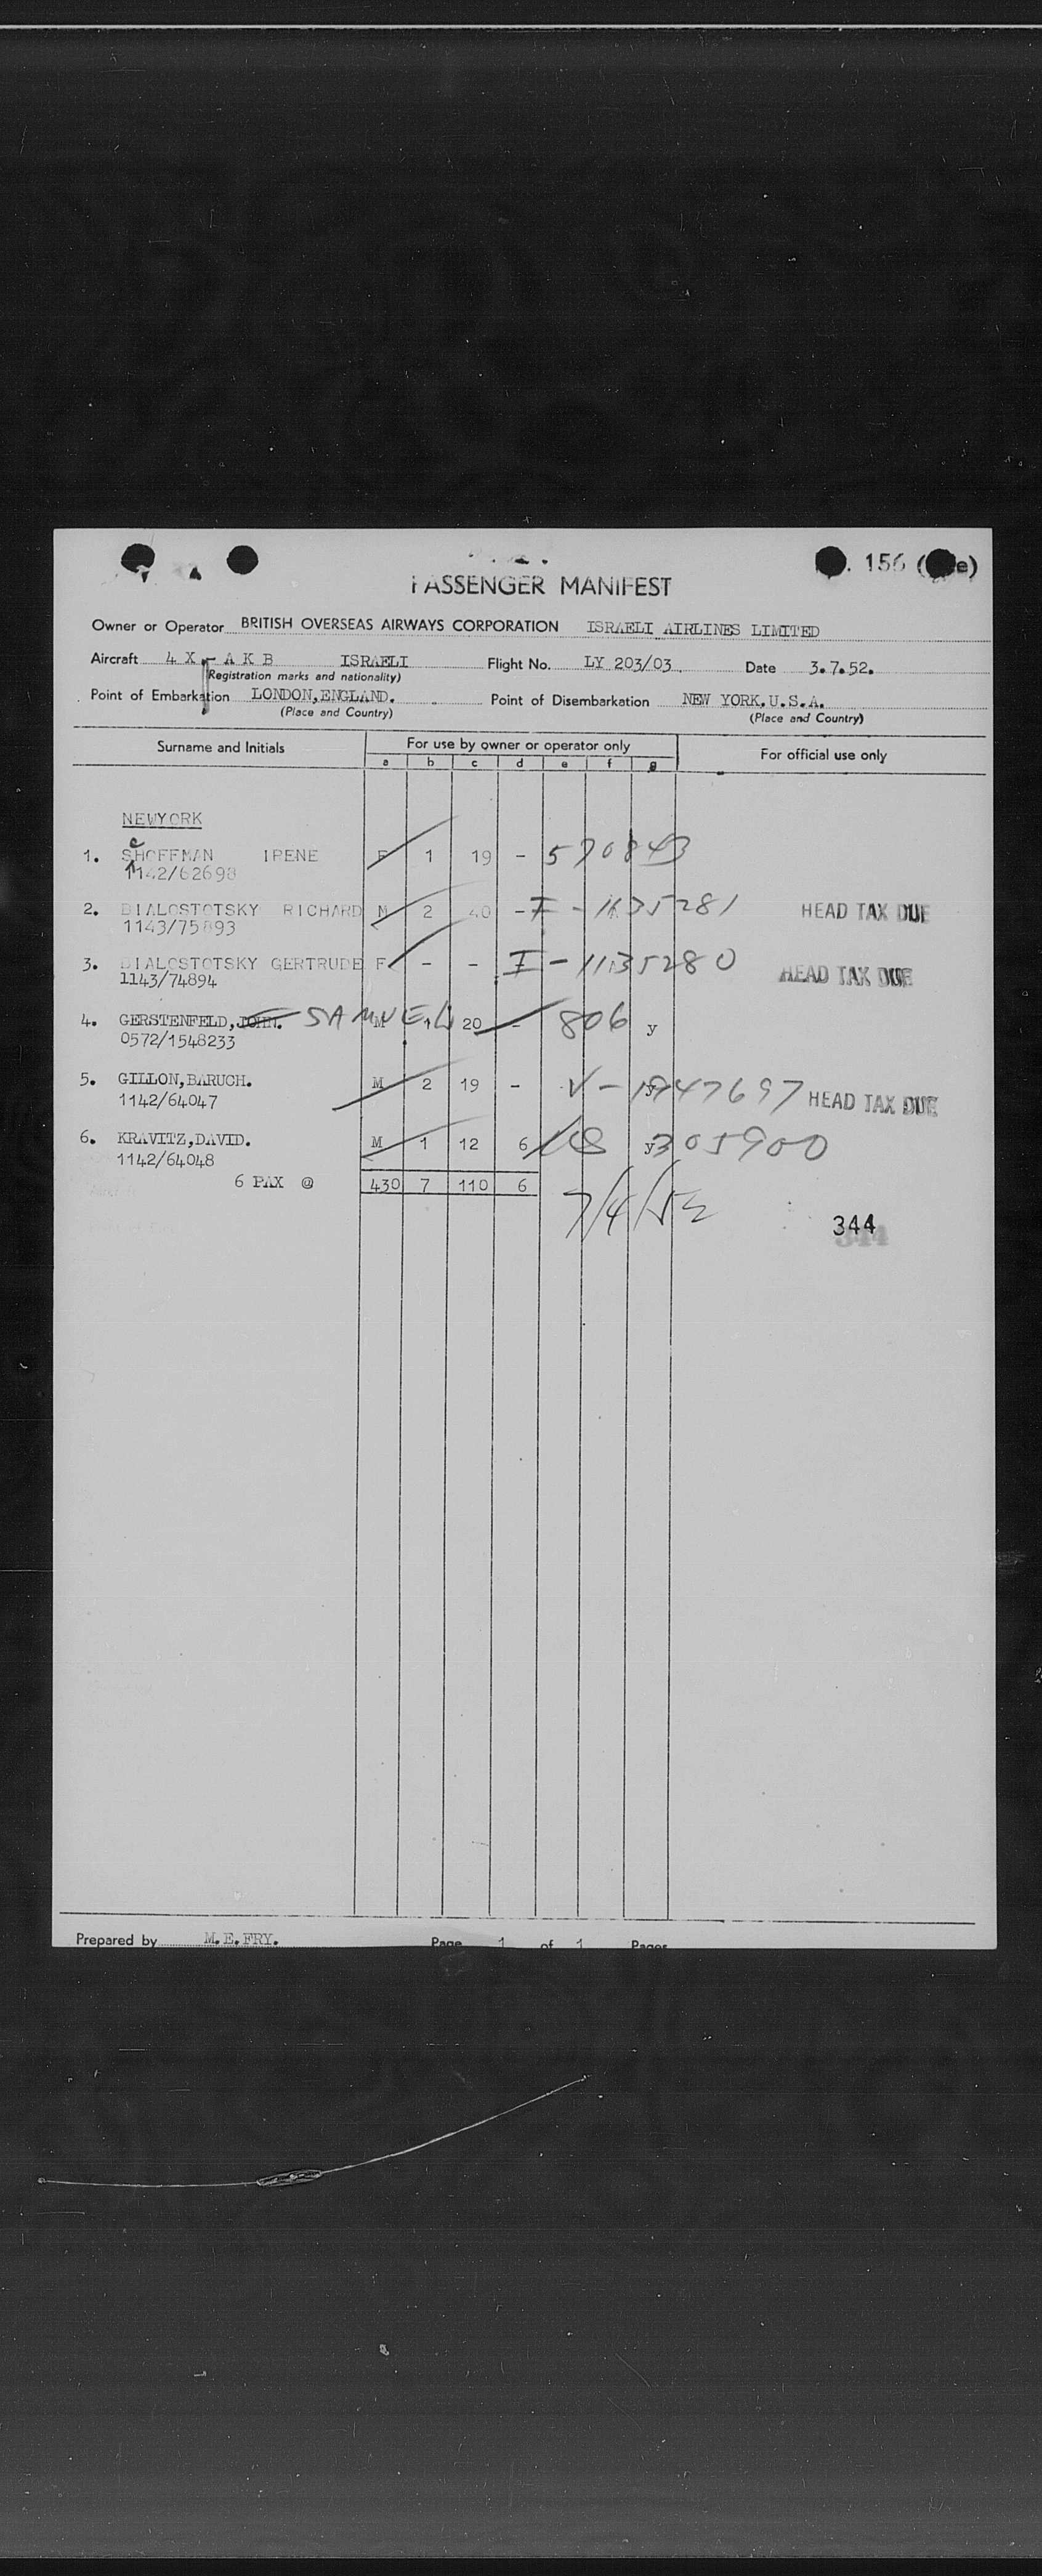 156 ( e)
PASSENGER MANIFEST
Owner or Operator BRITISH OVERSEAS AIRWAYS CORPORATION ISRAELI AIRLINES LIMITED
Aircraft 4 X - A K B ISRAELI Flight No. LY 203/03. Date 3.7.52.
(Registration marks and nationality)
Point of Embarkation LONDON,ENGLAND. Point of Disembarkation NEW YORK.U.S.A.
(Place and Country) (Place and Country)
Surname and Initials For use by owner or operator only For official use only
a b c d e f g
NEWYORK
1. SHOFFMAN IRENE F 1 19 - 570843
1142/62698
2. BIALOSTOTSKY RICHARD M 2 40 - I-1135281 HEAD TAX DUE
1143/75893
3. BIALOSTOTSKY GERTRUDE F - - I-1135280 HEAD TAX DUE
1143/74894
4. GERSTENFELD,JOHN. SAMUEL M 1 20 - 806 y
0572/1548233
5. GILLON,BARUCH. M 2 19 - V-1947697 HEAD TAX DUE
1142/64047
6. KRAVITZ,DAVID. M 1 12 6 US y 305900
1142/64048
6 PAX @ 430 7 110 6
7/4/52
344
Prepared by M.E.FRY. Page 1 of 1 Pages